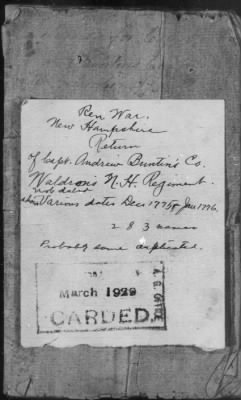 Rev. War.
New Hampshire
Return
of Capt. Andrew Buntin's Co.
Waldron's N.H. Regiment.
not dated
shows Various dates Dec 1775 & Jan 1776.
283 names
Probably some duplicates.
A. G. OFFICE
March 1929
CARDED.